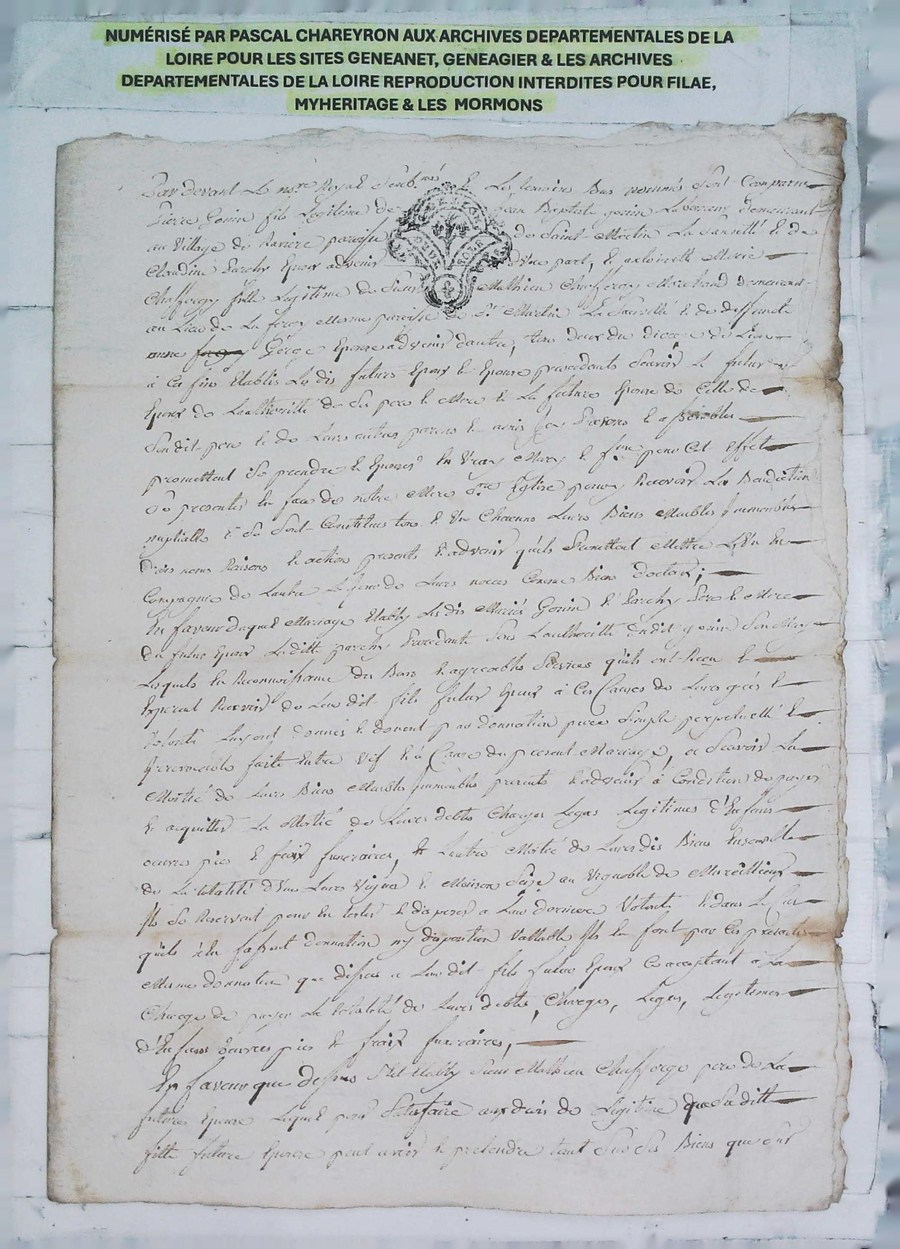 NUMÉRISÉ PAR PASCAL CHAREYRON AUX ARCHIVES DEPARTEMENTALES DE LA
LOIRE POUR LES SITES GENEANET, GENEAGIER & LES ARCHIVES
DEPARTEMENTALES DE LA LOIRE REPRODUCTION INTERDITES POUR FILAE,
MYHERITAGE & LES MORMONS
Par devant Le no.re Royal Soub.né & Les temoins Bas nommés Sont Comparus
Pierre Gonin fils Legitime de Jean Baptiste gonin Laboureur demeurant
au Village de paroisse de Saint Martin La Sauveté & de
Claudine Parchy Epoux advenir d'une part, & antoinette Marie
Chafforgy fille Legitime de Sieur Mathieu Chafforgy Marchand demeurant
au Lieu de La Meme paroisse de S.t Martin La Sauveté & de deffunte
anne George Epouse advenir d'autre, tous deux du dioceze de Lion
à Ces fins Etablis Lesdits futurs Epoux & Epouse procedants Scavoir Le futur
Epoux de Lauthorité de Ses pere & Mere & La future Epouse de Celle de
Sondit pere & de Leurs autres parens & amis Presens & assemblés
promettent Se prendre & Epouser En Vray Mary & feme pour Cet Effet
Se presenter En face de notre Mere S.te Eglise pour y Recevoir La Benediction
nuptialle & Se Sont Constitués tous & Un Chacuns Leurs Biens Meubles Immeubles
noms Raisons & action presents & advenir qu'ils Promettent Mettre L'Un En
Compagnie de Lautre Le jour de Leurs noces Comme Bien doctaux;
En faveur duquel Mariage Etablis Lesdits Mariés Gonin & Parchy Pere & Mere
du futur Epoux Laditte parchy Procedante Sous Lauthorité dudit gonin Son Mary
Lesquels En Reconnoissance des Bons & agreables Services qu'ils ont Recu &
Esperent Recevoir de Leur dit fils futur Epoux à Ces Causes de Leurs grés &
Volonté Luy ont donnés & donnent par donnation pure Simple perpetuelle &
Irrevocable faite Entre Vif & à Cause du present Mariage, Scavoir La
Moitié de Leurs Biens Meubles Immeubles presents & advenir à Condition de payer
& acquitter La Moitié de Leurs debtes Charges Legas Legitimes d'Enfans
œuvres pies & fraix funeraires, & Lautre Moitié de Leurs dits Biens Ensemble
de La totalité d'Une Leurs Vigne & Maison Size au Vignoble de
Ils Se Reservent pour En tester & disposer a Leur derniere Volonté & dans Le Cas
qu'ils n'En fassent donnation ny disposition Vallable Ils En font par Ces presentes
Meme donnation que dessus a Leur dit fils futur Epoux Ce acceptant a La
Charge de payer La totalité de Leurs debtes, Charges, Legas, Legitimes
d'Enfans œuvres pies & fraix funeraires,
En faveur que dessus S'est Etably Sieur Mathieu Chafforgy pere de La
future Epouse Lequel pour Satisfaire aux droits de Legitime que Saditte
fille future Epouse peut avoir & pretendre tant Sur Ses Biens que Sur